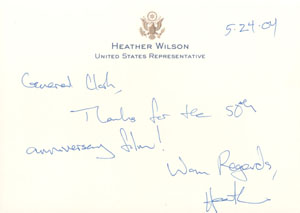 HEATHER WILSON
UNITED STATES REPRESENTATIVE
5-24-04
General Clark,
Thanks for the 50th
anniversary film!
Warm Regards,
Heather